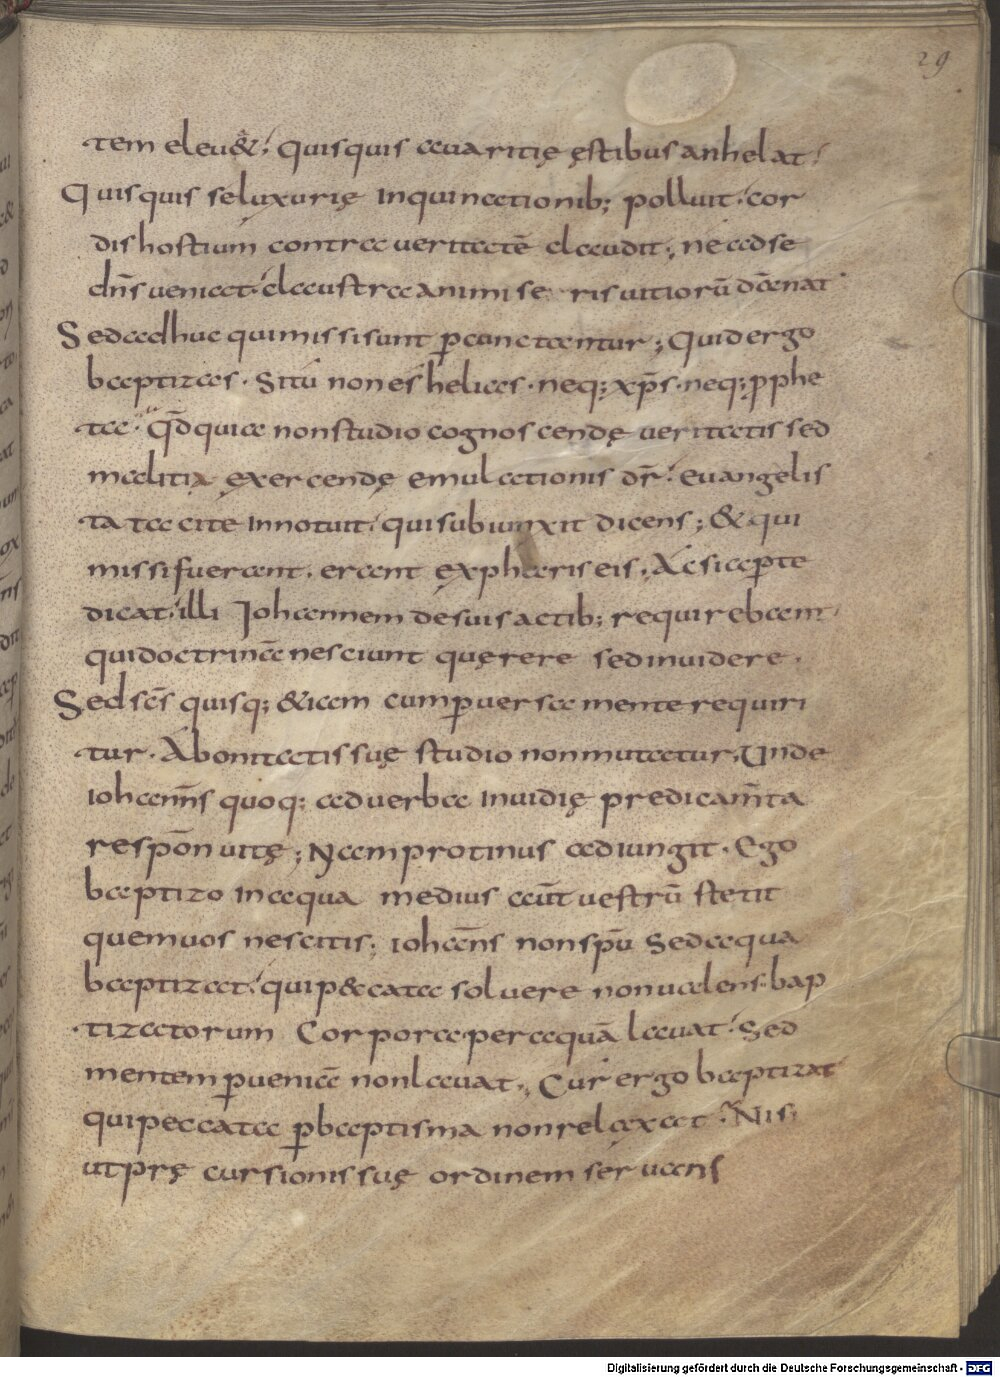 29
tem eleu&; quisquis auaritię ęstibus anhelat;
Quisquis se luxurię inquinationib; polluit. cor
dis hostium contra ueritatē claudit; ne ad se
dn̄s ueniat. claustra animi se ris uitiorū dāmnat
Sed adhuc qui missi sunt p̱cunctantur; Quid ergo
baptizas. Si tu non es helias. neq; xp̄s. neq; pphe
ta. Qd̄ quia non studio cognoscendę ueritatis sed
malitia exercendę emulationis dr̄. euangelis
ta tacite innotuit. qui subiunxit dicens; & qui
missi fuerant. erant ex phariseis. Ac si aperte
dicat. illi Iohannem de suis actib; requirebant.
qui doctrinā nesciunt quęrere sed inuidere.
Sed scs̄ quisq; &iam cum p̱uersa mente requiri
tur. A bonitatis suę studio non mutatur. Unde
iohann̄s quoq; ad uerba inuidię predicam̄ta
respōn uitę; Nam protinus adiungit. Ego
baptizo in aqua medius aūt uestrū stetit
quem uos nescitis; iohann̄s non spū sed aqua
baptizat. qui p&cata soluere non ualens. bap
tizatorum Corpora per aquā lauat. Sed
mentem p̱ueniā non lauat. Cur ergo baptizat
qui peccata p̱ baptisma non relaxat. Nisi
ut prę cursionis suę ordinem seruans
Digitalisierung gefördert durch die Deutsche Forschungsgemeinschaft - DFG